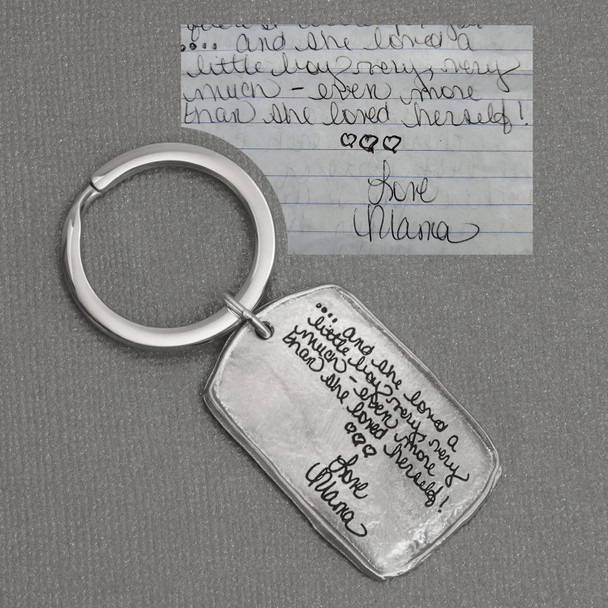 .... and she loved a
little boy very, very
much - even more
than she loved herself!
♡♡♡
Love
Mama
.... and she loved a
little boy very, very
much - even more
than she loved herself!
♡♡♡
Love
Mama